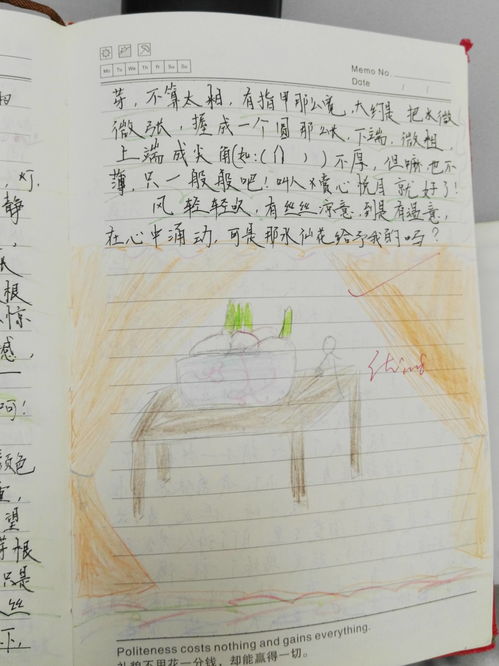 Mo Tu We Th Fr Sa Su
Memo No.
Date / /
芽，不算太粗，有指甲那么宽，大约是把水微
微张，握成一个圆那么长，下端，微粗，
上端成尖角(如:( ) )不厚，但嘛也不
薄，只一般般吧！叫人赏心悦目就好了！
风轻轻吹，有丝丝凉意，到是有温意，
在心中涌动，可是那水仙花给予我的吗？
相
灯，
静
根
惊
感，
呵！
颜色
望
芽根
只是
丝
下，
Politeness costs nothing and gains everything.
礼貌不用花一分钱，却能赢得一切。